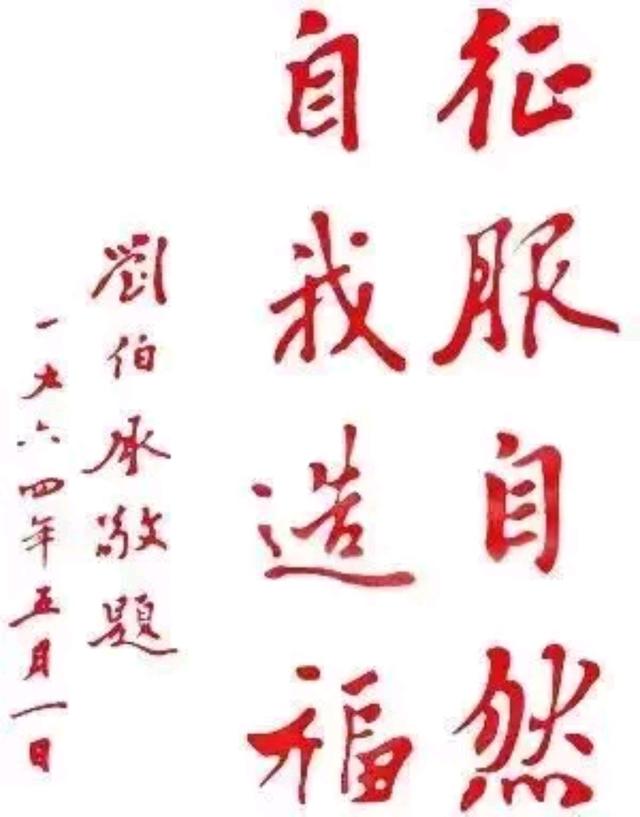 征服自然
自我造福
劉伯承敬題
一九六四年五月一日